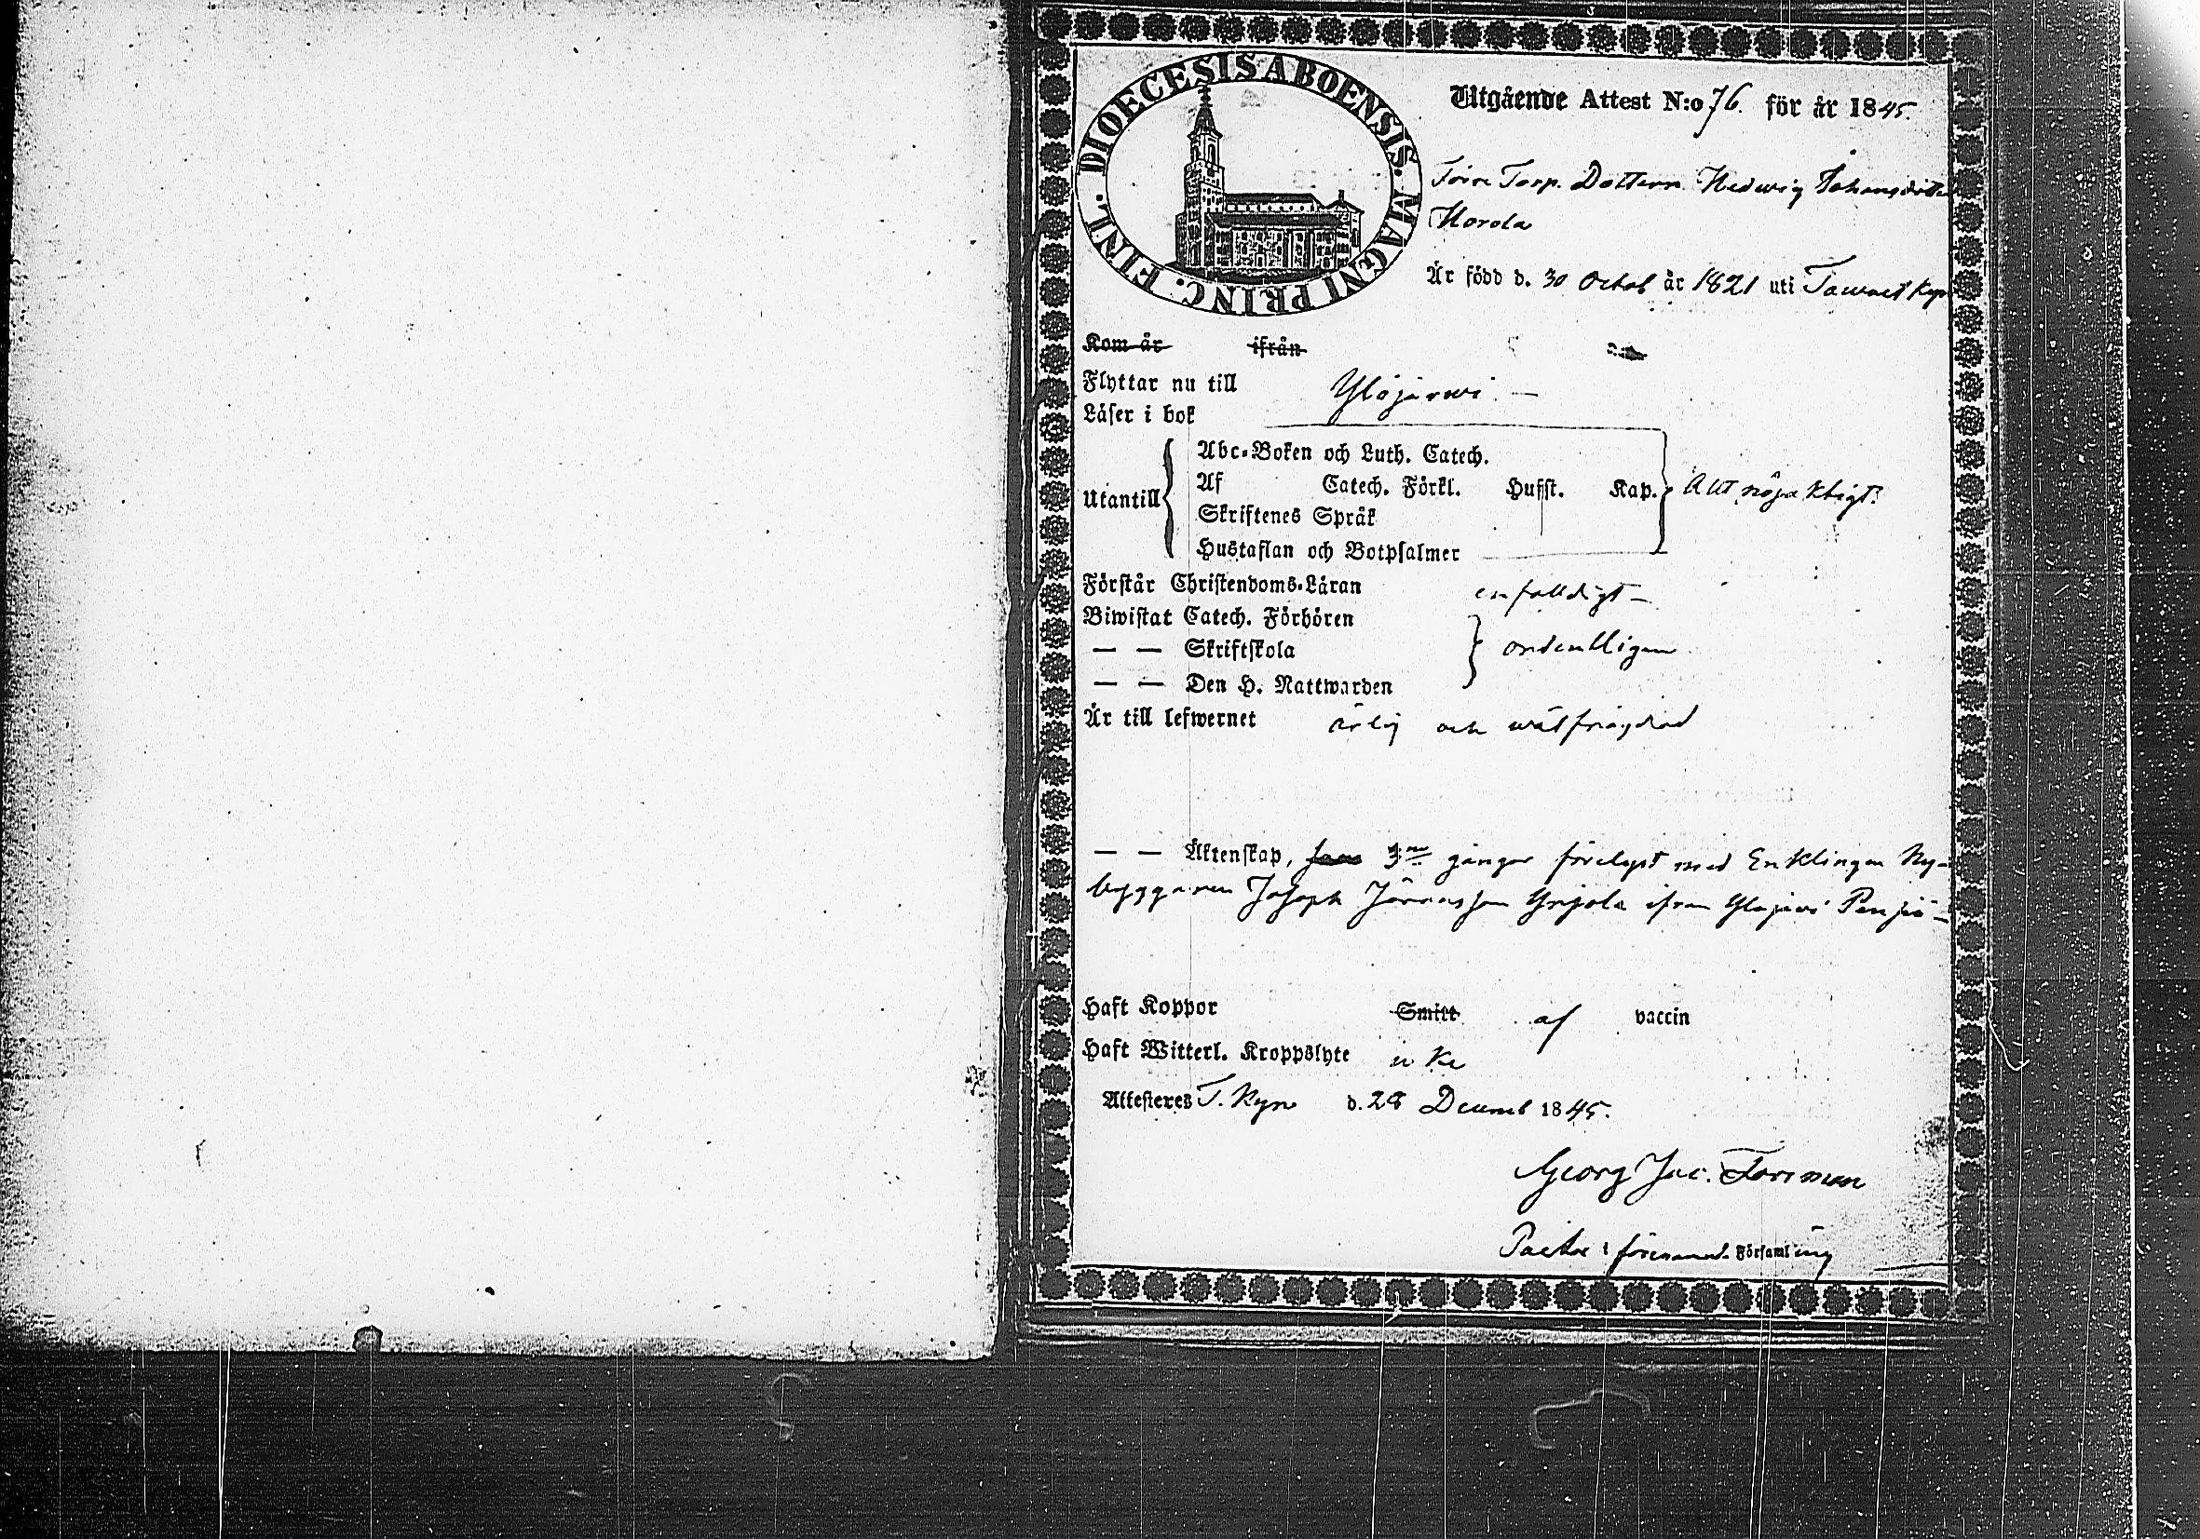 DIOECESIS ABOENSIS. MAGNI PRINC. FINL.
Utgående Attest N:o 76. för år 1845.
Torp. Dottern Hedwig Johansdotter
Horola
Är född d. 30 Octob år 1821 uti Tawast Kyro
Kom år ifrån
Flyttar nu till Ylöjärwi. —
Läser i bok
Utantill
Abc-Boken och Luth. Catech.
Af Catech. Förkl. Husst. Kap. Allt nöjaktigt.
Skriftenes Språk
Hustaflan och Botpsalmer
Förstår Christendoms-Läran enfalldigt —
Biwistat Catech. Förhören
— — Skriftskola ordentligen
— — Den H. Nattwarden
Är till lefwernet ärlig och wälfrägdad
— — Äktenskap, 3ne gångor förelyst med Enklingen Ny-
byggaren Joseph ifrån Ylöjärwi
Haft Koppor Smitt af vaccin
Haft Witterl. Kroppslyte icke
Attesteres T. Kyro d. 28 Decemb 1845.
Georg Jac. Forsman
Pastor i förenamd. Församling